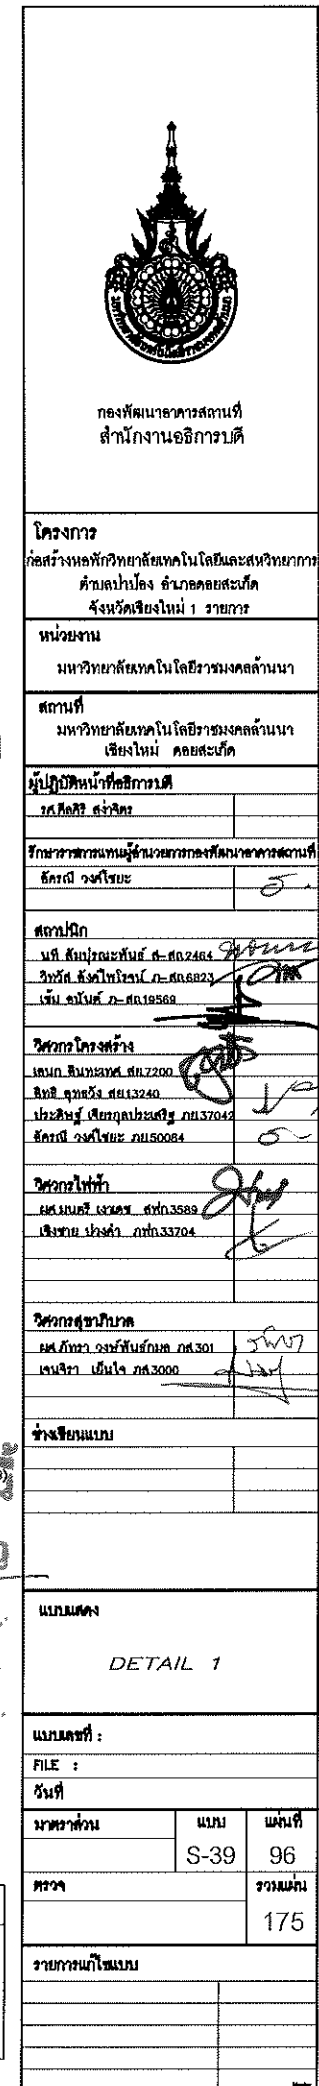 กองพัฒนาอาคารสถานที่
สำนักงานอธิการบดี
โครงการ
ก่อสร้างหอพักวิทยาลัยเทคโนโลยีและสหวิทยาการ
ตำบลป่าป้อง อำเภอดอยสะเก็ด
จังหวัดเชียงใหม่ 1 รายการ
หน่วยงาน
มหาวิทยาลัยเทคโนโลยีราชมงคลล้านนา
สถานที่
มหาวิทยาลัยเทคโนโลยีราชมงคลล้านนา
เชียงใหม่ ดอยสะเก็ด
ผู้ปฏิบัติหน้าที่อธิการบดี
รศ.ศีลศิริ สง่าจิตร
รักษาราชการแทนผู้อำนวยการกองพัฒนาอาคารสถานที่
อัครณี วงศ์ไชยะ
สถาปนิก
นที สมบุรณะพันธ์ ส-สถ.2464
วิทวัส ภ-สถ.6823
เข้ม อนันต์ ภ-สถ.19569
วิศวกรโครงสร้าง
เสนก อินทะเทศ สย.7200
สิทธิ สุทธวัง สย.13240
ประดิษฐ์ เจียรกุลประเสริฐ ภย.37042
อัครณี วงศ์ไชยะ ภย.50084
วิศวกรไฟฟ้า
ผศ.มนตรี เงาเดช สฟก.3589
เชิงชาย ปวงคำ ภฟก.33704
วิศวกรสุขาภิบาล
ผศ.ภัทรา วงษ์พันธ์กมล ภส.301
เจนจิรา เย็นใจ ภส.3000
ช่างเขียนแบบ
แบบแสดง
DETAIL 1
แบบเลขที่ :
FILE :
วันที่
มาตราส่วน แบบ แผ่นที่
S-39 96
ตรวจ รวมแผ่น
175
รายการแก้ไขแบบ